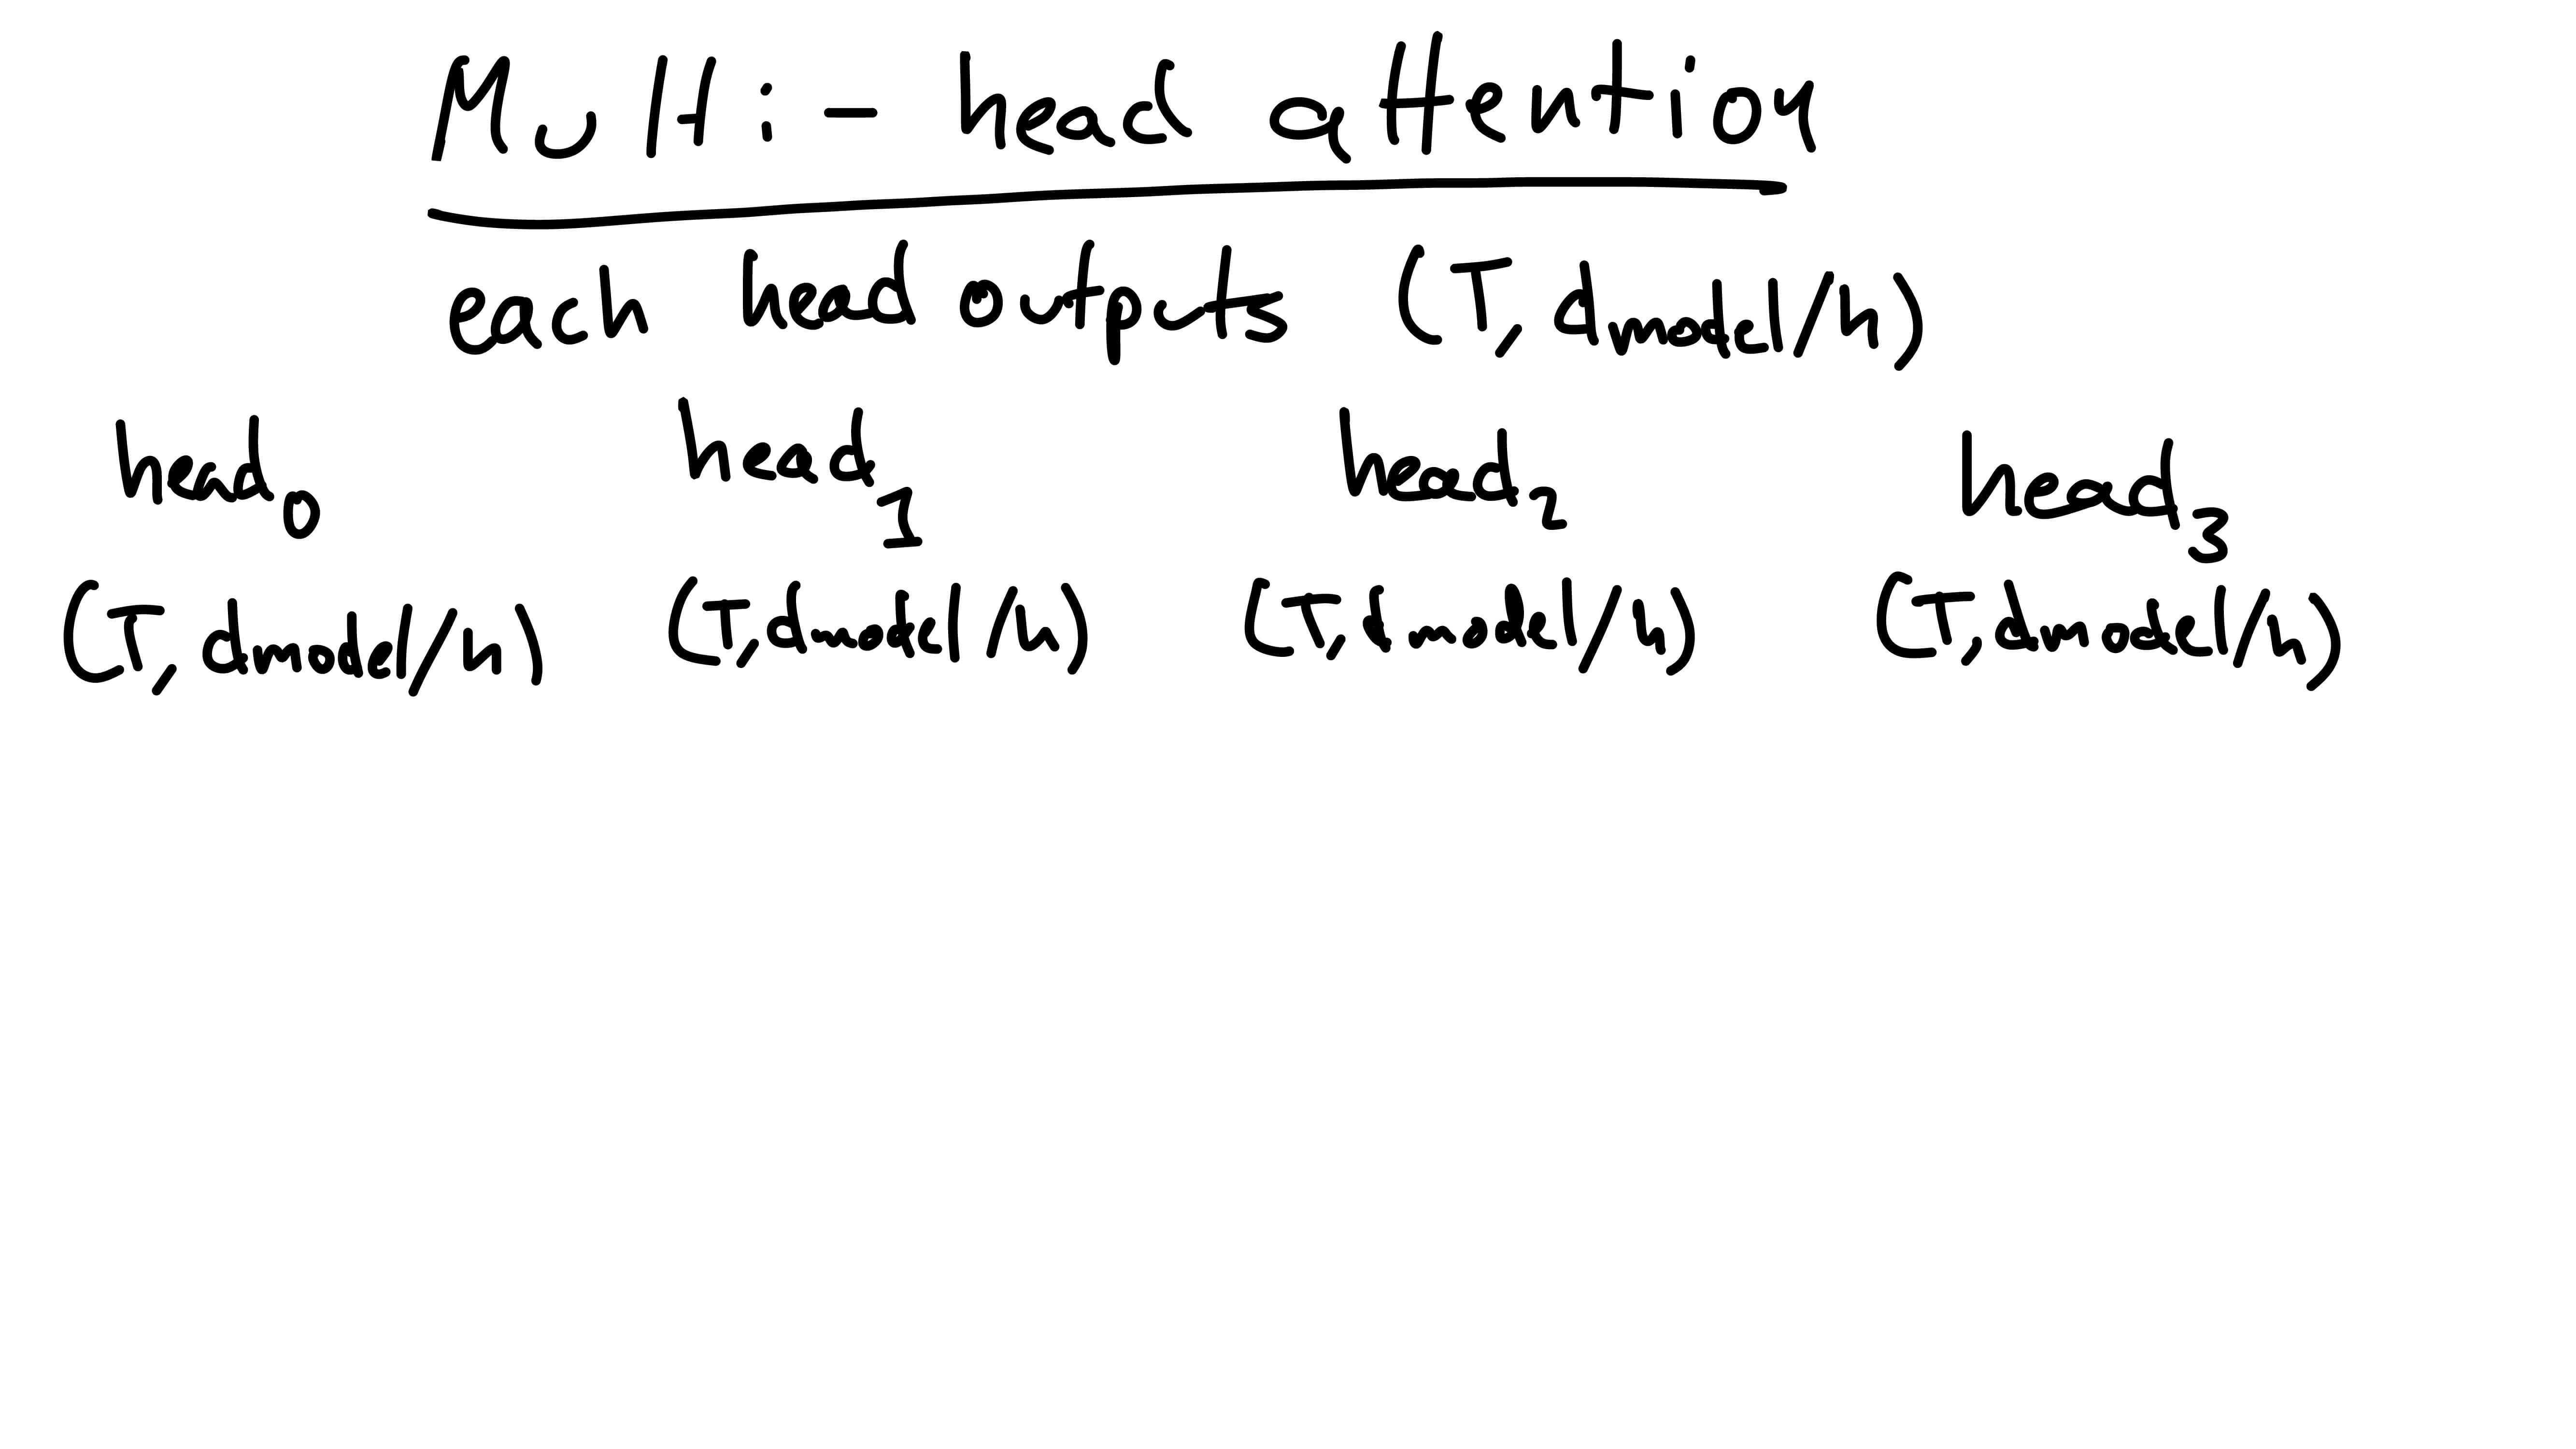 Multi-head attention
each head outputs (T, dmodel/h)
head0 head1 head2 head3
(T, dmodel/h) (T, dmodel/h) (T, dmodel/h) (T, dmodel/h)